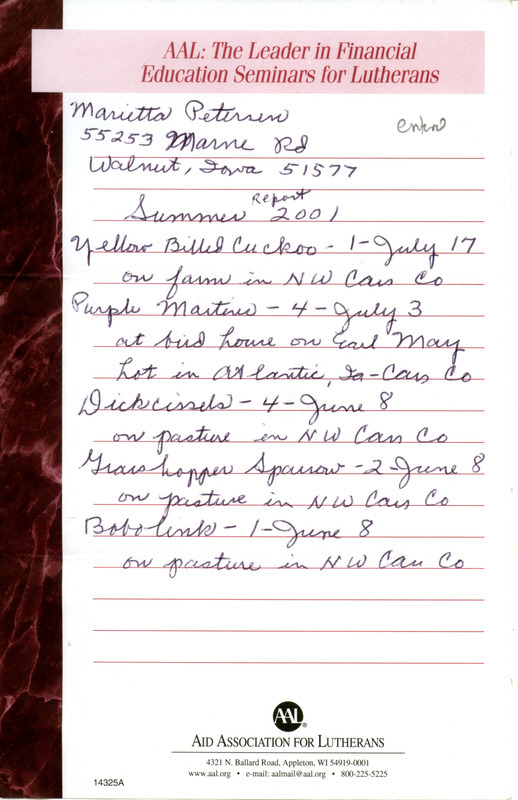 AAL: The Leader in Financial
Education Seminars for Lutherans
Marietta Petersen
55253 Marne Rd
Walnut, Iowa 51577
Summer Report 2001
Yellow Billed Cuckoo - 1 - July 17
on farm in NW Cass Co
Purple Martins - 4 - July 3
at bird house on Earl May
lot in Atlantic, Ia - Cass Co
Dickcissels - 4 - June 8
on pasture in NW Cass Co
Grasshopper Sparrow - 2 - June 8
on pasture in NW Cass Co
Bobolink - 1 - June 8
on pasture in NW Cass Co
AAL
AID ASSOCIATION FOR LUTHERANS
4321 N. Ballard Road, Appleton, WI 54919-0001
www.aal.org • e-mail: aalmail@aal.org • 800-225-5225
14325A